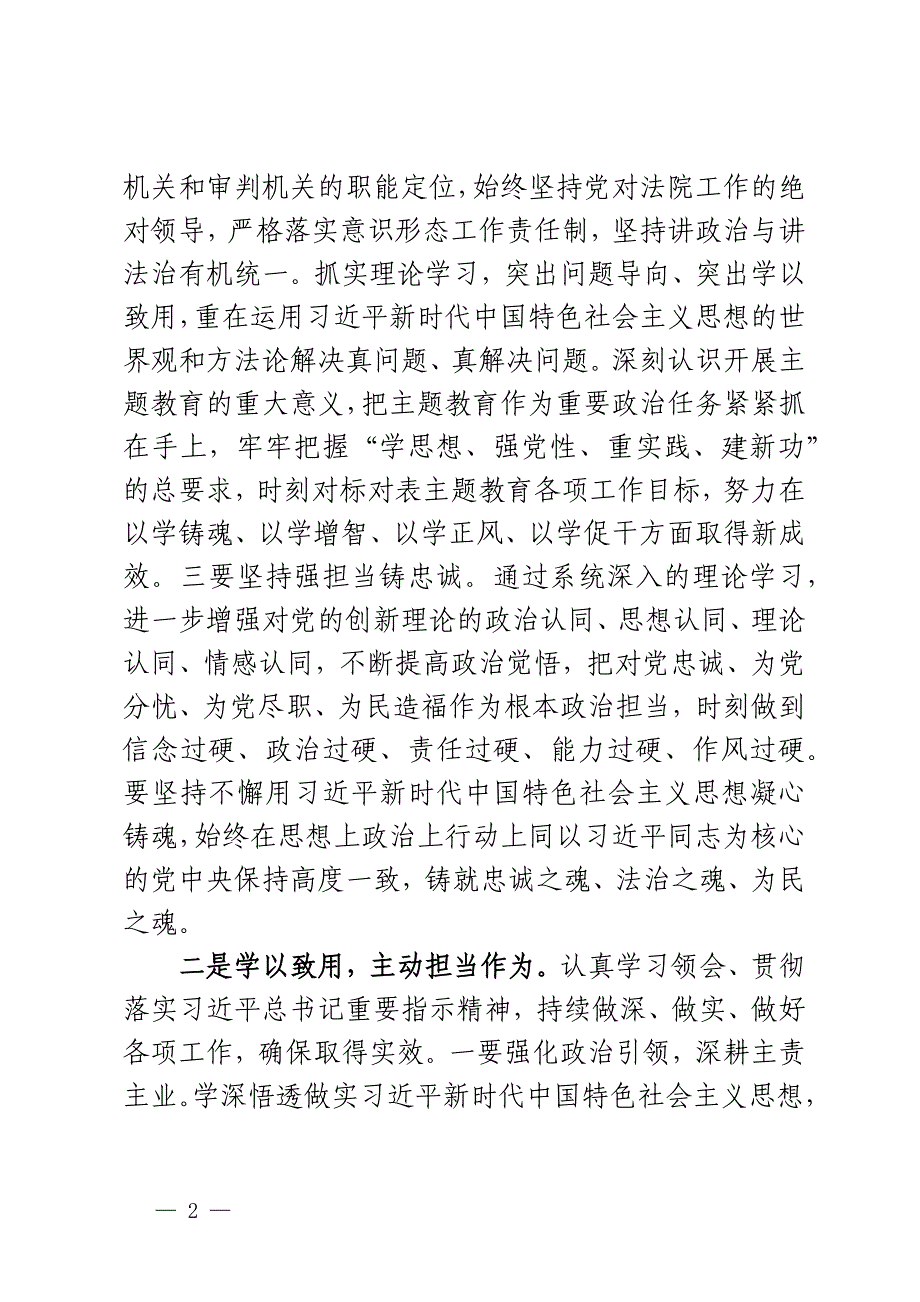 机关和审判机关的职能定位，始终坚持党对法院工作的绝
对领导，严格落实意识形态工作责任制，坚持讲政治与讲
法治有机统一。抓实理论学习，突出问题导向、突出学以
致用，重在运用习近平新时代中国特色社会主义思想的世
界观和方法论解决真问题、真解决问题。深刻认识开展主
题教育的重大意义，把主题教育作为重要政治任务紧紧抓
在手上，牢牢把握“学思想、强党性、重实践、建新功”
的总要求，时刻对标对表主题教育各项工作目标，努力在
以学铸魂、以学增智、以学正风、以学促干方面取得新成
效。三要坚持强担当铸忠诚。通过系统深入的理论学习，
进一步增强对党的创新理论的政治认同、思想认同、理论
认同、情感认同，不断提高政治觉悟，把对党忠诚、为党
分忧、为党尽职、为民造福作为根本政治担当，时刻做到
信念过硬、政治过硬、责任过硬、能力过硬、作风过硬。
要坚持不懈用习近平新时代中国特色社会主义思想凝心
铸魂，始终在思想上政治上行动上同以习近平同志为核心
的党中央保持高度一致，铸就忠诚之魂、法治之魂、为民
之魂。
二是学以致用，主动担当作为。认真学习领会、贯彻
落实习近平总书记重要指示精神，持续做深、做实、做好
各项工作，确保取得实效。一要强化政治引领，深耕主责
主业。学深悟透做实习近平新时代中国特色社会主义思想，
— 2 —